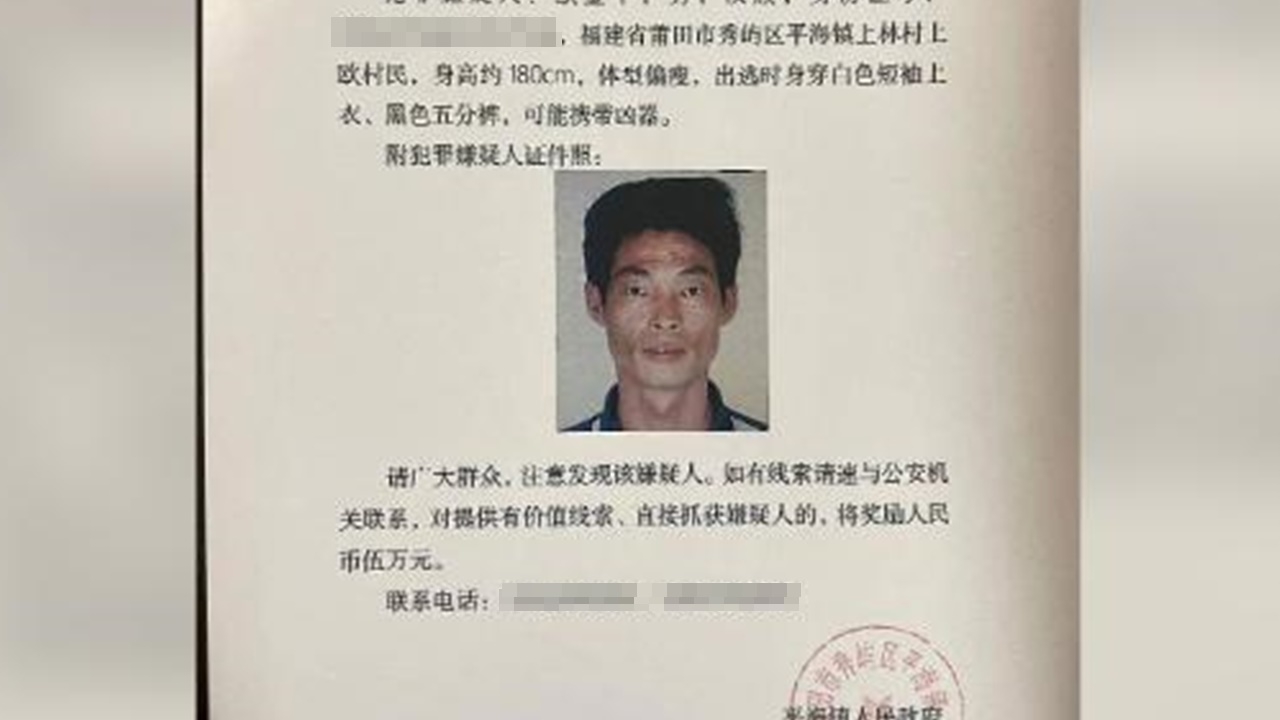 ，福建省莆田市秀屿区平海镇上林村上
欧村民，身高约180cm，体型偏瘦，出逃时身穿白色短袖上
衣、黑色五分裤，可能携带凶器。
附犯罪嫌疑人证件照：
请广大群众，注意发现该嫌疑人。如有线索请速与公安机
关联系，对提供有价值线索、直接抓获嫌疑人的，将奖励人民
币伍万元。
联系电话：
市秀屿区平海镇
平海镇人民政府